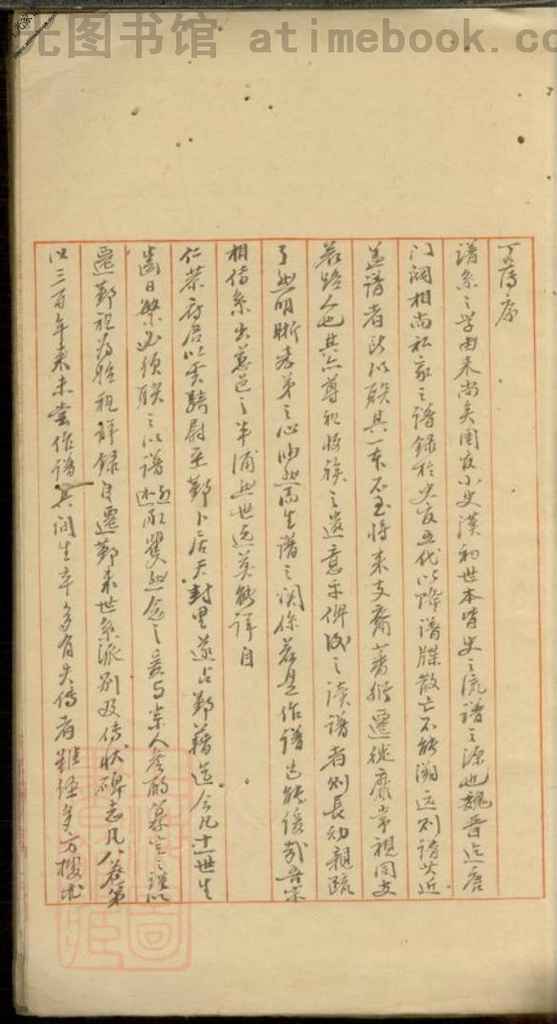 光图书馆 atimebook.com
旧序
谱系之学由来尚矣周官小史汉初世本皆史之流谱之源也魏晋迄唐
门阀相尚私家之谱录于史官五代以降谱牒散亡不能溯远则谱其近
盖谱者所以联其一本不至将来支裔蕃衍迁徙靡常视同支
若路人也其亦尊祖收族之遗意乎俾后之读谱者则长幼亲疏
了然明晰孝弟之心油然而生谱之关系若是作谱岂能缓哉吾宗
相传系出慈邑之半浦然世远莫能详自
仁荣府君以云骑尉至鄞卜居天封里遂占鄞籍迄今凡十一世生
齿日繁必须联之以谱 爰与宗人
迁鄞祖为始祖详录自迁鄞来世系派别及传状碑志凡八卷第
以三百年来未尝作谱其间生卒多有失传者虽经多方搜求